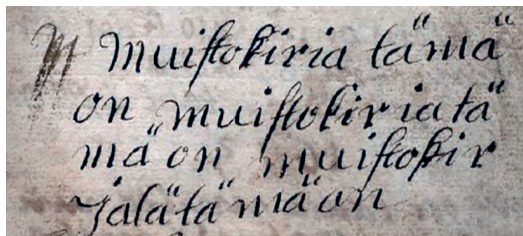 M Muistokiria tämä
on muistokiria tä
mä on muistokir
jalätä mä on